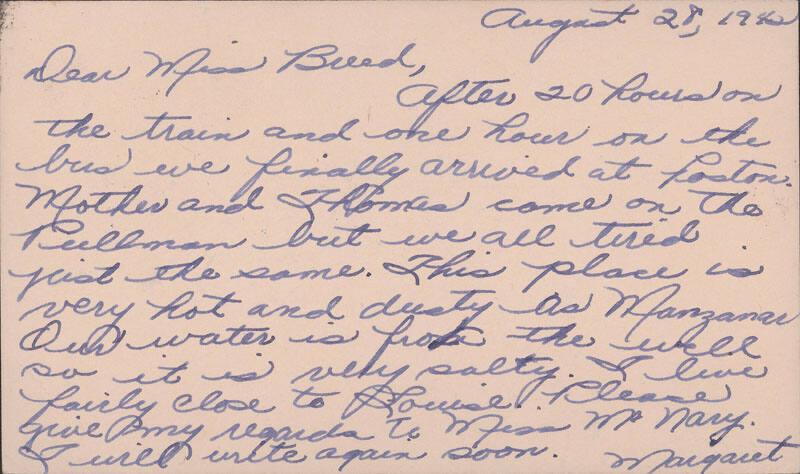 August 28, 1942
Dear Miss Breed,
After 20 hours on
the train and one hour on the
bus we finally arrived at Poston.
Mother and Thomas came on the
Pullman but we all tired
just the same. This place is
very hot and dusty as Manzanar
Our water is from the well
so it is very salty. I live
fairly close to Louise. Please
give my regards to Miss McNary.
I will write again soon. Margaret